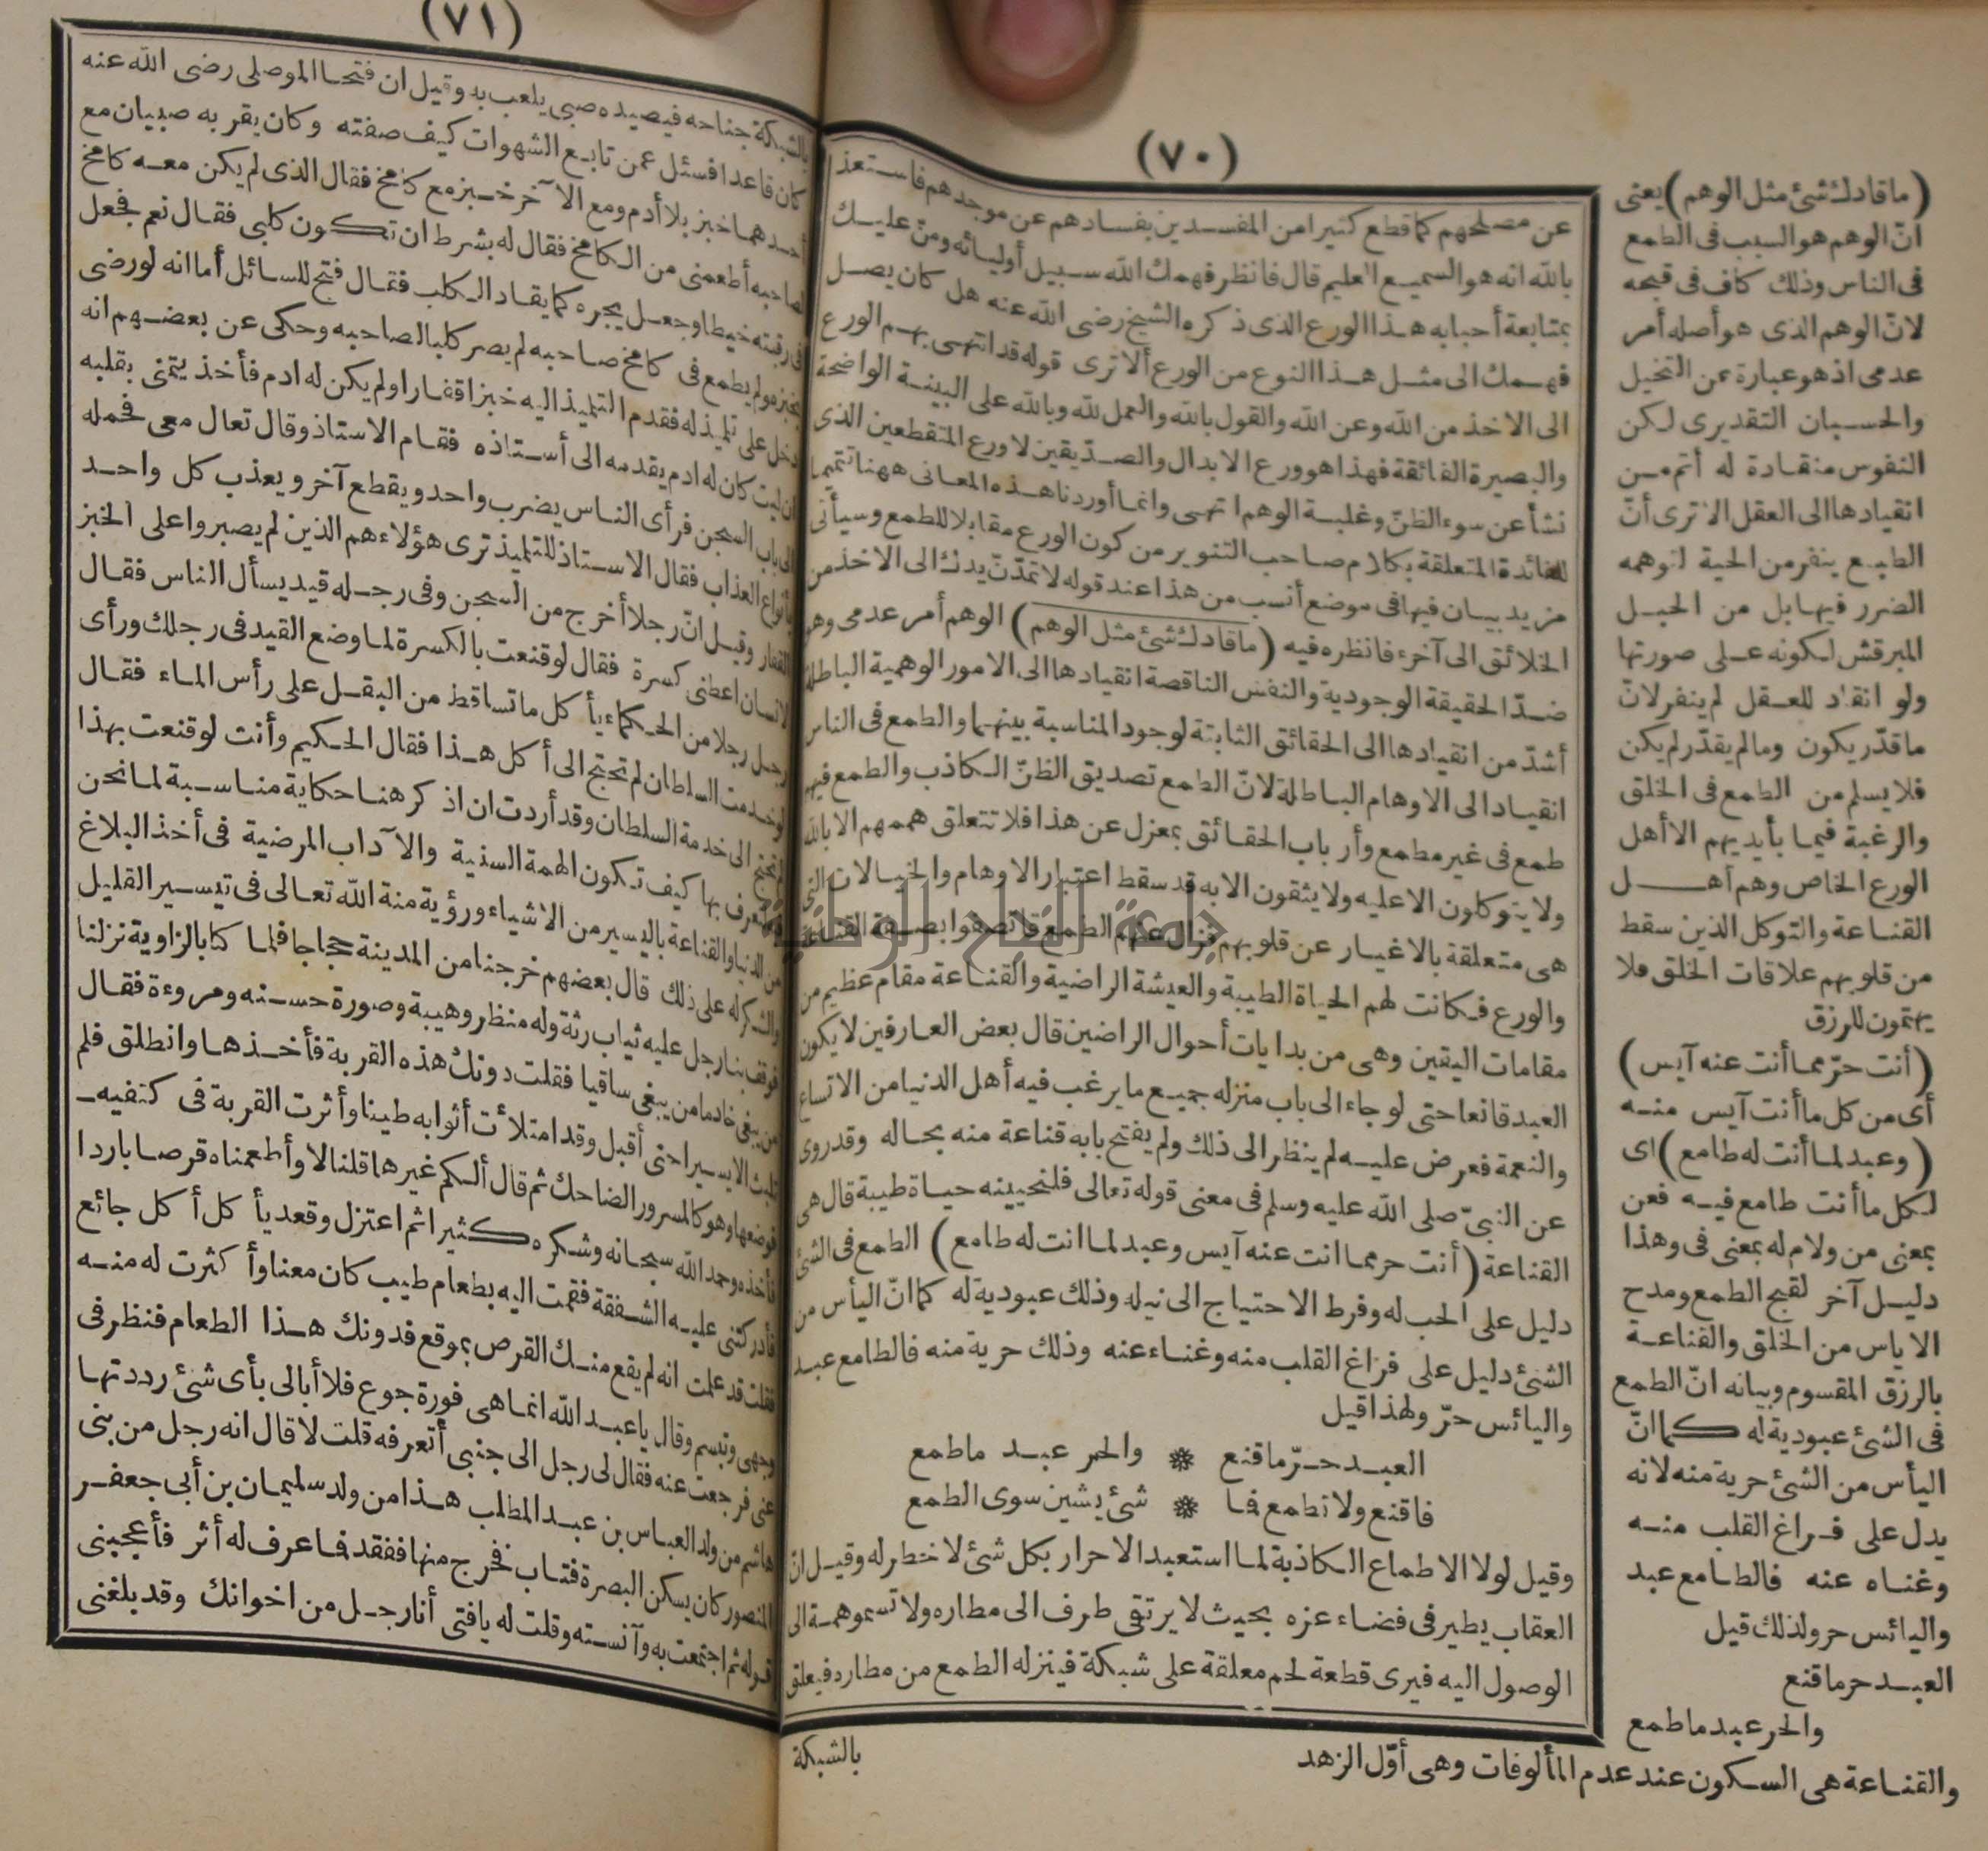 (٧٠)
عن مصلحهم كما قطع كثيرا من المفسدين بفسادهم عن موجدهم فاستعذ
بالله انه هو السميع العليم قال فانظر فهمك الله سبيل أوليائه ومنّ عليك
بمتابعة أحبابه هذا الورع الذى ذكره الشيخ رضى الله عنه هل كان يصل
فهمك الى مثل هذا النوع من الورع ألا ترى قوله قد انتهى بهم الورع
الى الاخذ من الله وعن الله والقول بالله والعمل لله وبالله على البينة الواضحة
والبصيرة الفائقة فهذا هو ورع الابدال والصدّيقين لا ورع المتقطعين الذى
نشأ عن سوء الظنّ وغلبة الوهم انتهى وانما أوردنا هذه المعانى ههنا تتميما
للفائدة المتعلقة بكلام صاحب التنوير من كون الورع مقابلا للطمع وسيأتى
مزيد بيان فيها فى موضع أنسب من هذا عند قوله لا تمدّنّ يدك الى الاخذ من
الخلائق الى آخره فانظره فيه (ماقادك شئ مثل الوهم) الوهم أمر عدمى وهو
ضدّ الحقيقة الوجودية والنفس الناقصة انقيادها الى الامور الوهمية الباطلة
أشدّ من انقيادها الى الحقائق الثابتة لوجود المناسبة بينهما والطمع فى الناس
انقياد الى الاوهام الباطلة لانّ الطمع تصديق الظنّ الكاذب والطمع فيهم
طمع فى غير مطمع وأرباب الحقائق بمعزل عن هذا فلا تتعلق هممهم الا بالله
ولا يتوكلون الا عليه ولا يثقون الا به قد سقط اعتبار الاوهام والخيالات التى
هى متعلقة بالاغيار عن قلوبهم فزال عنهم الطمع فاتصفوا بصفة القناعة
والورع فكانت لهم الحياة الطيبة والعيشة الراضية والقناعة مقام عظيم من
مقامات اليقين وهى من بدايات أحوال الراضين قال بعض العارفين لا يكون
العبد قانعا حتى لو جاء الى باب منزله جميع ما يرغب فيه أهل الدنيا من الاتساع
والنعمة فعرض عليه لم ينظر الى ذلك ولم يفتح بابه قناعة منه بحاله وقد روى
عن النبىّ صلى الله عليه وسلم فى معنى قوله تعالى فلنحيينه حياة طيبة قال هى
القناعة (أنت حر مما انت عنه آيس وعبد لما انت له طامع) الطمع فى الشئ
دليل على الحب له وفرط الاحتياج الى نيله وذلك عبودية له كما انّ اليأس من
الشئ دليل على فراغ القلب منه وغناء عنه وذلك حرية منه فالطامع عبد
واليائس حرّ ولهذا قيل
العبد حرّ ما قنع ❋ والحر عبد ما طمع
فاقنع ولا تطمع فما ❋ شئ يشين سوى الطمع
وقيل لولا الاطماع الكاذبة لما استعبد الاحرار بكل شئ لا خطر له وقيل انّ
العقاب يطير فى فضاء عزه بحيث لا يرتقى طرف الى مطاره ولا تسمو همة الى
الوصول اليه فيرى قطعة لحم معلقة على شبكة فينزله الطمع من مطاره فيعلق
بالشبكة
(ماقادك شئ مثل الوهم) يعنى
انّ الوهم هو السبب فى الطمع
فى الناس وذلك كاف فى قبحه
لانّ الوهم الذى هو أصله أمر
عدمى اذ هو عبارة عن التخيل
والحسبان التقديرى لكن
النفوس منقادة له أتم من
انقيادها الى العقل الا ترى أنّ
الطبع ينفر من الحية لتوهمه
الضرر فيها بل من الحبل
المبرقش لكونه على صورتها
ولو انقاد للعقل لم ينفر لانّ
ما قدّر يكون وما لم يقدّر لم يكن
فلا يسلم من الطمع فى الخلق
والرغبة فيما بأيديهم الا أهل
الورع الخاص وهم أهل
القناعة والتوكل الذين سقط
من قلوبهم علاقات الخلق فلا
يهتمون للرزق
(أنت حرّ مما أنت عنه آيس)
أى من كل ما أنت آيس منه
(وعبد لما أنت له طامع) اى
لكل ما أنت طامع فيه فعن
بمعنى من ولام له بمعنى فى وهذا
دليل آخر لقبح الطمع ومدح
الاياس من الخلق والقناعة
بالرزق المقسوم وبيانه انّ الطمع
فى الشئ عبودية له كما انّ
اليأس من الشئ حرية منه لانه
يدل على فراغ القلب منه
وغناه عنه فالطامع عبد
واليائس حر ولذلك قيل
العبد حر ما قنع
والحر عبد ما طمع
والقناعة هى السكون عند عدم المألوفات وهى أوّل الزهد
(٧١)
بالشبكة جناحه فيصيده صبى يلعب به وقيل ان فتحا الموصلى رضى الله عنه
كان قاعدا فسئل عمن تابع الشهوات كيف صفته وكان بقربه صبيان مع
أحدهما خبز بلا أدم ومع الآخر خبز مع كامخ فقال الذى لم يكن معه كامخ
لصاحبه أطعمنى من الكامخ فقال له بشرط ان تكون كلبى فقال نعم فجعل
فى رقبته خيطا وجعل يجره كما يقاد الكلب فقال فتح للسائل أما انه لو رضى
بخبزه ولم يطمع فى كامخ صاحبه لم يصر كلبا لصاحبه وحكى عن بعضهم انه
دخل على تلميذ له فقدم التلميذ اليه خبزا قفارا ولم يكن له ادم فأخذ يتمنى بقلبه
ان ليت كان له ادم يقدمه الى أستاذه فقام الاستاذ وقال تعال معى فحمله
الى باب السجن فرأى الناس يضرب واحد ويقطع آخر ويعذب كل واحد
بأنواع العذاب فقال الاستاذ للتلميذ ترى هؤلاء هم الذين لم يصبروا على الخبز
القفار وقيل انّ رجلا أخرج من السجن وفى رجله قيد يسأل الناس فقال
لانسان اعطنى كسرة فقال لو قنعت بالكسرة لما وضع القيد فى رجلك ورأى
رجل رجلا من الحكماء يأكل ما تساقط من البقل على رأس الماء فقال
لو خدمت السلطان لم تحتج الى أكل هذا فقال الحكيم وأنت لو قنعت بهذا
لم تحتج الى خدمة السلطان وقد أردت ان اذكر هنا حكاية مناسبة لما نحن
يعرف بها كيف تكون الهمة السنية والآداب المرضية فى أخذ البلاغ
من الدنيا والقناعة باليسير من الاشياء ورؤية منة الله تعالى فى تيسير القليل
والشكر له على ذلك قال بعضهم خرجنا من المدينة حجاجا فلما كنا بالزاوية نزلنا
فوقف بنا رجل عليه ثياب رثة وله منظر وهيبة وصورة حسنه ومروءة فقال
من يبغى خادما من يبغى ساقيا فقلت دونك هذه القربة فأخذها وانطلق فلم
يلبث الا يسيرا حتى أقبل وقد امتلأت أثوابه طينا وأثرت القربة فى كتفيه
فوضعها وهو كالمسرور الضاحك ثم قال ألكم غيرها قلنا لا وأطعمناه قرصا باردا
فأخذه وحمد الله سبحانه وشكره كثيرا ثم اعتزل وقعد يأكل أكل جائع
فأدركتنى عليه الشفقة فقمت اليه بطعام طيب كان معنا وأكثرت له منه
فقلت قد علمت انه لم يقع منك القرص بموقع فدونك هذا الطعام فنظر فى
وجهى وتبسم وقال يا عبد الله انما هى فورة جوع فلا أبالى بأى شئ رددتها
عنى فرجعت عنه فقال لى رجل الى جنبى أتعرفه قلت لا قال انه رجل من بنى
هاشم من ولد العباس بن عبد المطلب هذا من ولد سليمان بن أبى جعفر
المنصور كان يسكن البصرة فتاب فخرج منها ففقد فما عرف له أثر فأعجبنى
قوله ثم اجتمعت به وآنسته وقلت له يا فتى أنا رجل من اخوانك وقد بلغنى
جامعة النجاح الوطنية